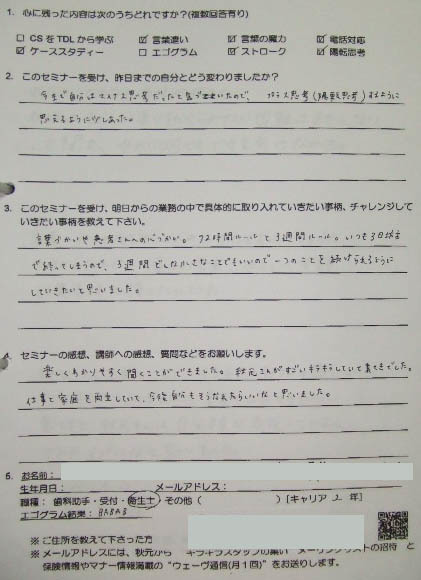 1. 心に残った内容は次のうちどれですか?(複数回答有り)
□ CSをTDLから学ぶ ☑ 言葉遣い ☑ 言葉の魔力 ☑ 電話対応
☑ ケーススタディー □ エゴグラム ☑ ストローク ☑ 陽転思考
2. このセミナーを受け、昨日までの自分とどう変わりましたか?
今まで自分はマイナス思考だったと気づきましたので、プラス思考(陽転思考)するように
思えるように少しなった。
3. このセミナーを受け、明日からの業務の中で具体的に取り入れていきたい事柄、チャレンジして
いきたい事柄を教えて下さい。
言葉づかいや患者さんへの心づかい。72時間ルールと3週間ルール。いつも3日坊主
で終ってしまうので、3週間どんな小さなことでもいいので一つのことを続けられるように
していきたいと思いました。
4. セミナーの感想、講師への感想、質問などをお願いします。
楽しくわかりやすく聞くことができました。秋元さんがすごいキラキラしていて素敵でした。
仕事と家庭を両立していて、今後自分もそうなれたらいいなと思いました。
5. お名前:
生年月日: メールアドレス:
職種:歯科助手・受付・衛生士 その他( )[キャリア 2 年]
エゴグラム結果:
※ ご住所を教えて下さった方
※ メールアドレスには、秋元から キラキラスタッフの集い メーリングリストの招待 と
保険情報やマナー情報満載の"ウェーヴ通信(月1回)"をお送りします。